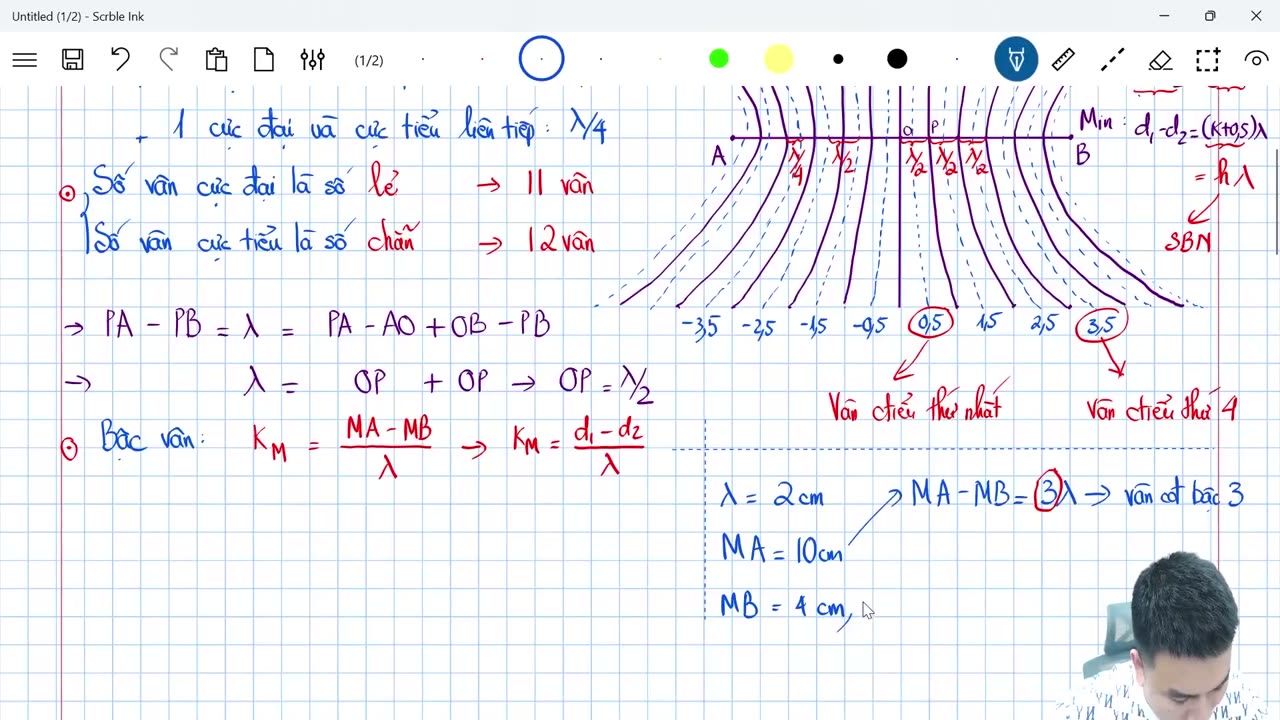 Untitled (1/2) - Scrble Ink
(1/2)
- 1 cực đại và cực tiểu liên tiếp: λ/4
Số vân cực đại là số lẻ → 11 vân
Số vân cực tiểu là số chẵn → 12 vân
→ PA - PB = λ = PA - AO + OB - PB
→ λ = OP + OP → OP = λ/2
Bậc vân: K_M = (MA - MB)/λ → K_M = (d₁ - d₂)/λ
A λ/4 λ/2 O P λ/2 λ/2 λ/2 B
Min: d₁-d₂ = (k+0,5)λ
= hλ
SBN
-3,5 -2,5 -1,5 -0,5 0,5 1,5 2,5 3,5
Vân ctiểu thứ nhất
Vân ctiểu thứ 4
λ = 2cm
MA = 10cm
MB = 4 cm,
MA - MB = 3λ → vân cđ bậc 3